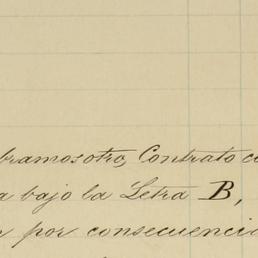 bramos otro, Contrato co
a bajo la Letra B,
n por consecuencia